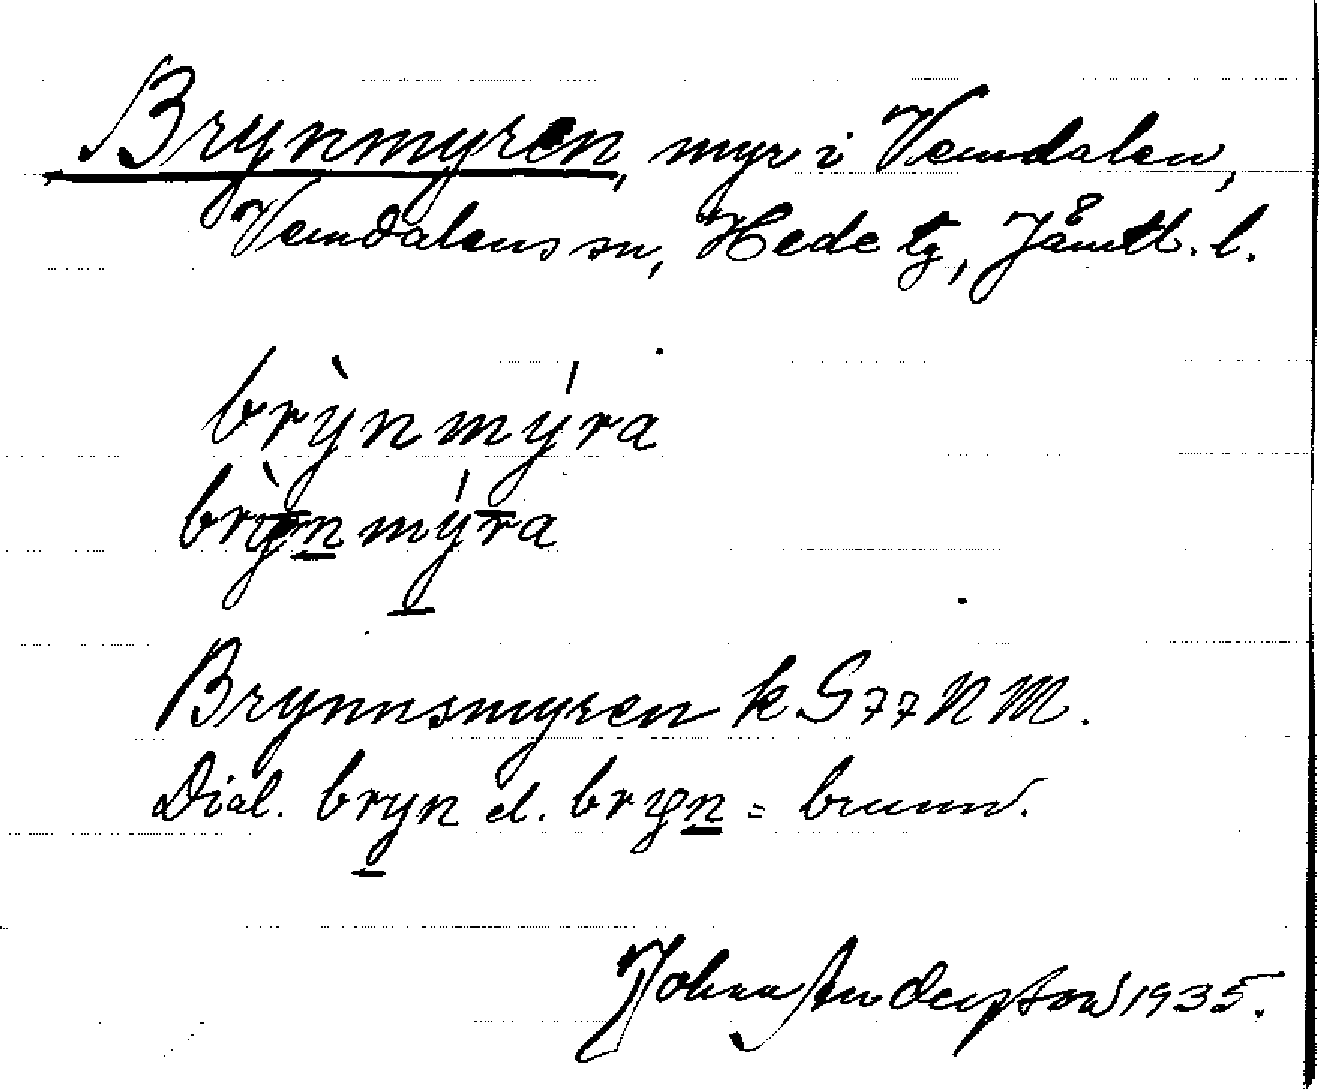 Brynmyren, myr i Vemdalen,
Vemdalens sn, Hede tg, Jämtl. l.
brỳnmýra
brỳnmýra
Brynnsmyren k S77NM.
Dial. bryn el. bryn = brunn.
Johan Anderson 1935.